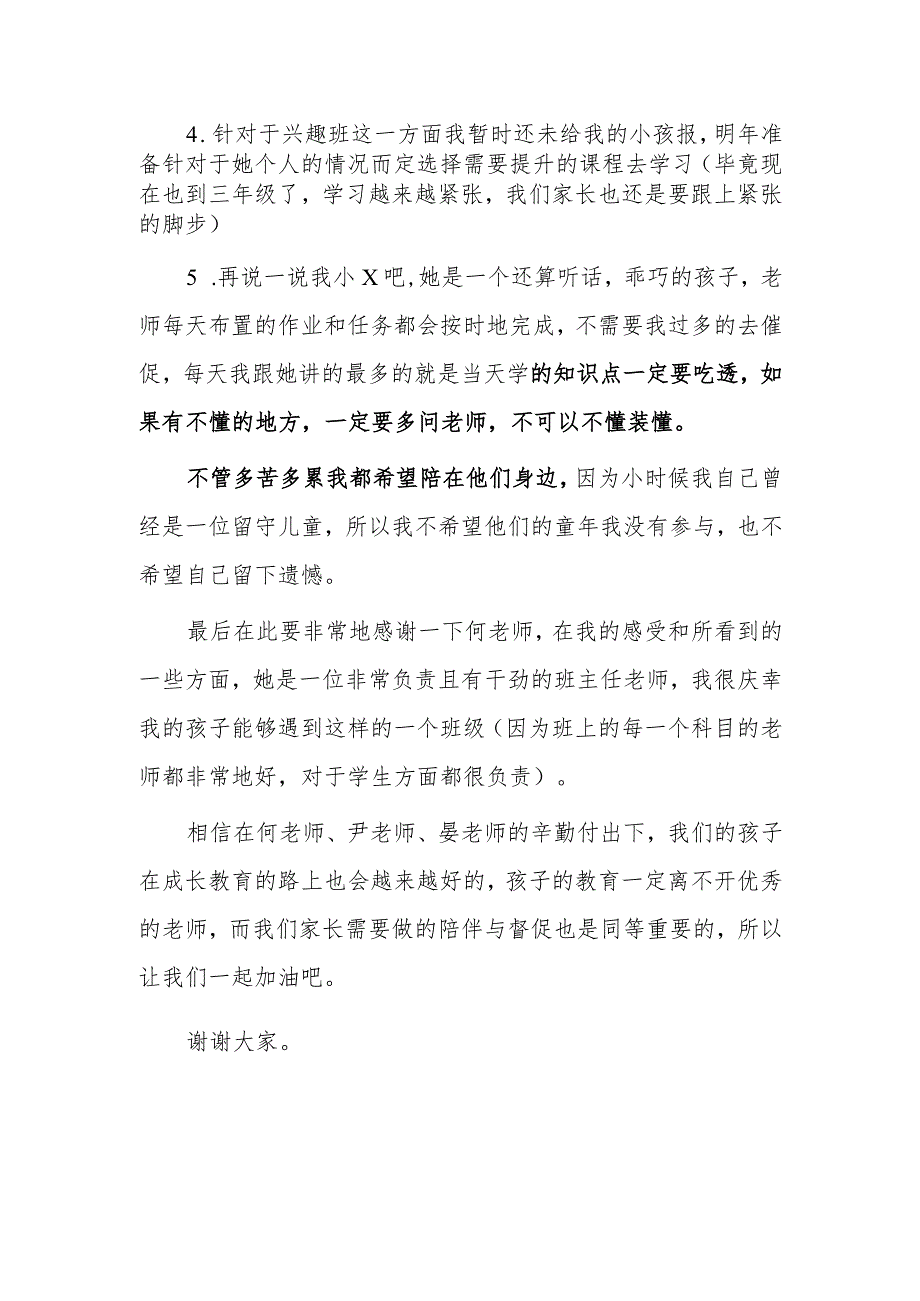 4. 针对于兴趣班这一方面我暂时还未给我的小孩报，明年准
备针对于她个人的情况而定选择需要提升的课程去学习（毕竟现
在也到三年级了，学习越来越紧张，我们家长也还是要跟上紧张
的脚步）
5 .再说一说我小X吧,她是一个还算听话，乖巧的孩子，老
师每天布置的作业和任务都会按时地完成，不需要我过多的去催
促，每天我跟她讲的最多的就是当天学的知识点一定要吃透，如
果有不懂的地方，一定要多问老师，不可以不懂装懂。
不管多苦多累我都希望陪在他们身边，因为小时候我自己曾
经是一位留守儿童，所以我不希望他们的童年我没有参与，也不
希望自己留下遗憾。
最后在此要非常地感谢一下何老师，在我的感受和所看到的
一些方面，她是一位非常负责且有干劲的班主任老师，我很庆幸
我的孩子能够遇到这样的一个班级（因为班上的每一个科目的老
师都非常地好，对于学生方面都很负责）。
相信在何老师、尹老师、晏老师的辛勤付出下，我们的孩子
在成长教育的路上也会越来越好的，孩子的教育一定离不开优秀
的老师，而我们家长需要做的陪伴与督促也是同等重要的，所以
让我们一起加油吧。
谢谢大家。